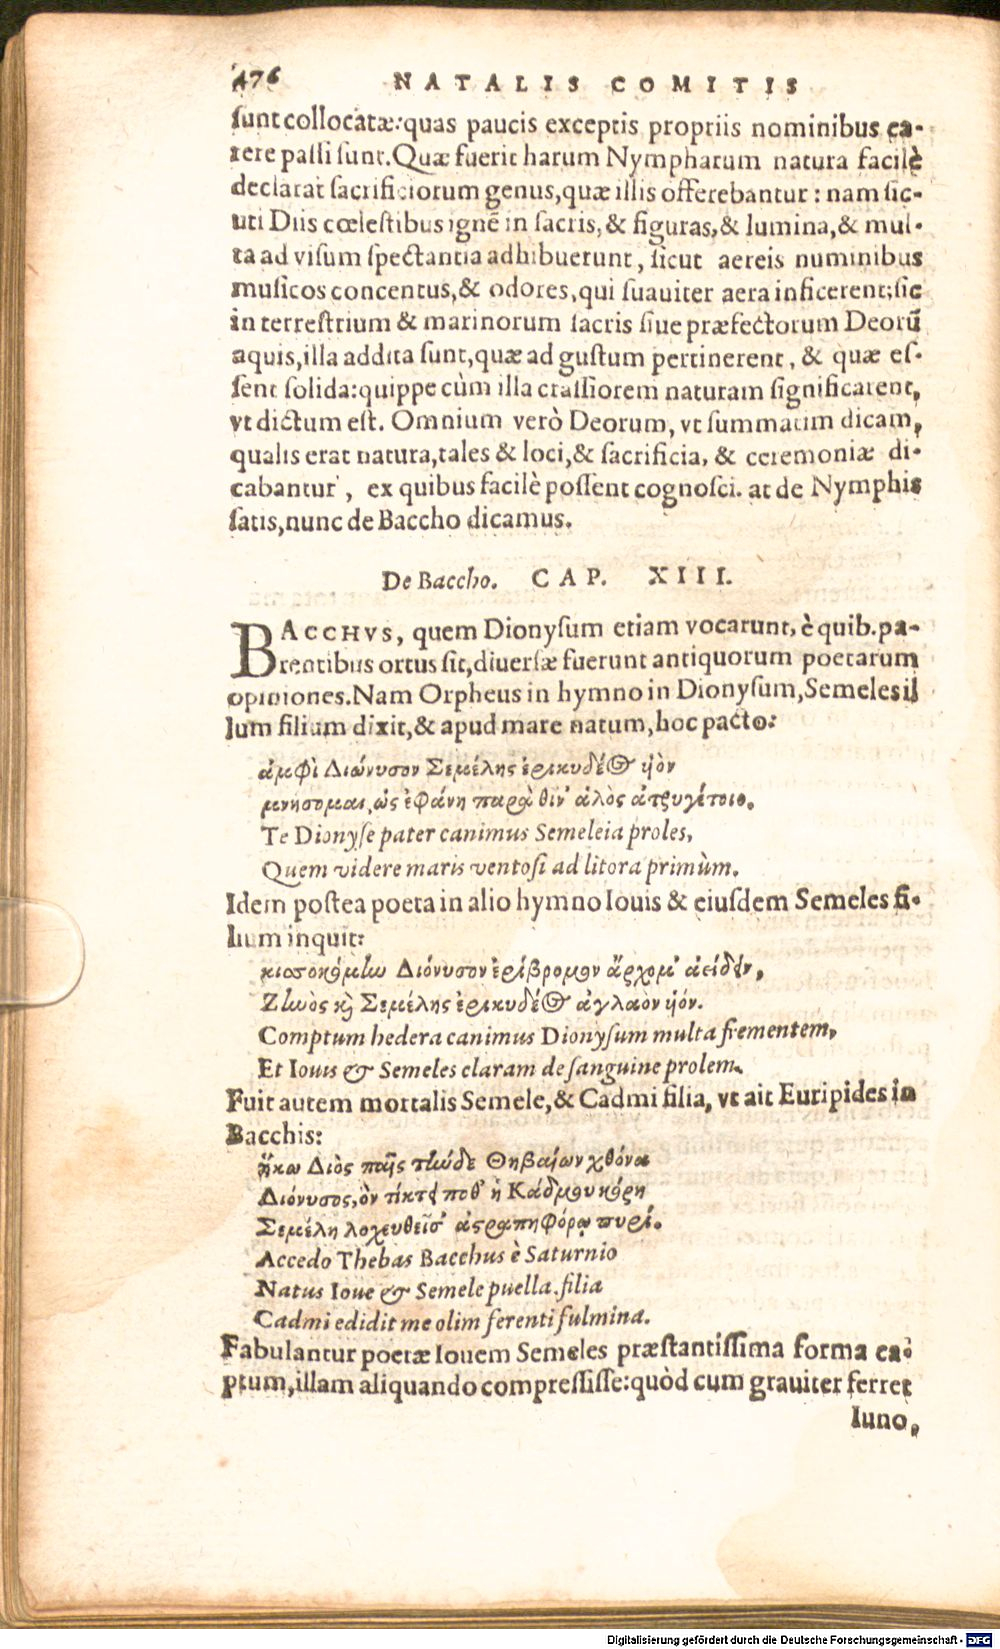 476 NATALIS COMITIS
sunt collocatæ: quas paucis exceptis propriis nominibus ca-
rere passi sunt. Quæ fuerit harum Nympharum natura facilè
declarat sacrificiorum genus, quæ illis offerebantur: nam sic-
uti Diis cœlestibus ignẽ in sacris, & figuras, & lumina, & mul-
ta ad visum spectantia adhibuerunt, sicut aereis numinibus
musicos concentus, & odores, qui suauiter aera inficerent; sic
in terrestrium & marinorum sacris siue præfectorum Deorũ
aquis, illa addita sunt, quæ ad gustum pertinerent, & quæ es-
sent solida: quippe cùm illa crassiorem naturam significarent,
vt dictum est. Omnium verò Deorum, vt summatim dicam,
qualis erat natura, tales & loci, & sacrificia, & ceremoniæ di-
cabantur, ex quibus facilè possent cognosci. at de Nymphis
satis, nunc de Baccho dicamus.
De Baccho. CAP. XIII.
BACCHVS, quem Dionysum etiam vocarunt, è quib. pa-
rentibus ortus sit, diuersæ fuerunt antiquorum poetarum
opiniones. Nam Orpheus in hymno in Dionysum, Semeles il
lum filium dixit, & apud mare natum, hoc pacto:
ἀμφὶ Διώνυσον Σεμέλης ἐρικυδέος υἱὸν
μνήσομαι, ὡς ἐφάνη παρὰ θῖν' ἁλὸς ἀτρυγέτοιο.
Te Dionyse pater canimus Semeleia proles,
Quem videre maris ventosi ad litora primùm.
Idem postea poeta in alio hymno Iouis & eiusdem Semeles fi-
lium inquit:
κισσοκόμην Διόνυσον ἐρίβρομον ἄρχομ' ἀείδειν,
Ζηνὸς καὶ Σεμέλης ἐρικυδέος ἀγλαὸν υἱόν.
Comptum hedera canimus Dionysum multa frementem,
Et Iouis & Semeles claram de sanguine prolem.
Fuit autem mortalis Semele, & Cadmi filia, vt ait Euripides in
Bacchis:
ἥκω Διὸς παῖς τήνδε Θηβαίων χθόνα
Διόνυσος, ὃν τίκτει ποθ' ἡ Κάδμου κόρη
Σεμέλη λοχευθεῖσ' ἀστραπηφόρῳ πυρί.
Accedo Thebas Bacchus è Saturnio
Natus Ioue & Semele puella. filia
Cadmi edidit me olim ferenti fulmina.
Fabulantur poetæ Iouem Semeles præstantissima forma ca-
ptum, illam aliquando compressisse: quòd cum grauiter ferret
Iuno,
Digitalisierung gefördert durch die Deutsche Forschungsgemeinschaft - DFG